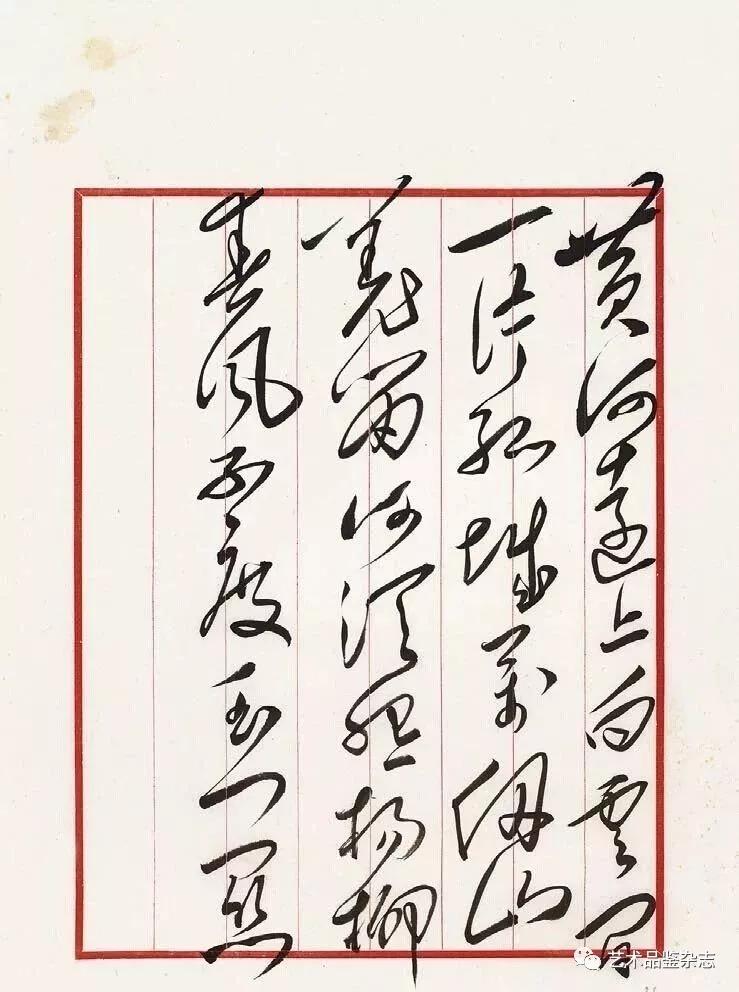 黄河远上白云间
一片孤城万仞山
羌笛何须怨杨柳
春风不度玉门关
艺术品鉴杂志